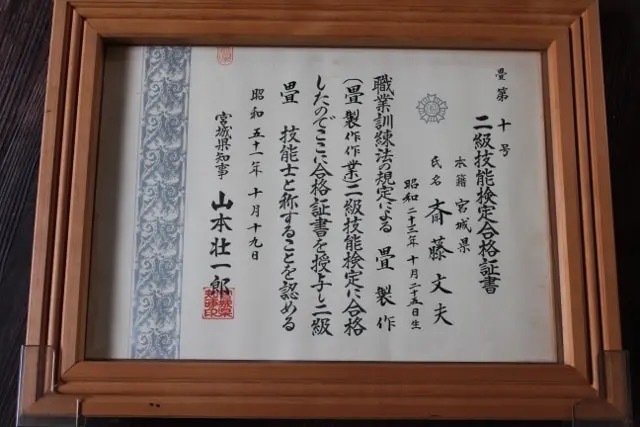 畳第十号
二級技能検定合格証書
本籍 宮城県
氏名 斎藤文夫
昭和二十三年十月二十五日生
職業訓練法の規定による 畳製作
(畳製作作業)二級技能検定に合格
したのでここに合格証書を授与し二級
畳 技能士と称することを認める
昭和五十一年十月十九日
宮城県知事 山本壮一郎